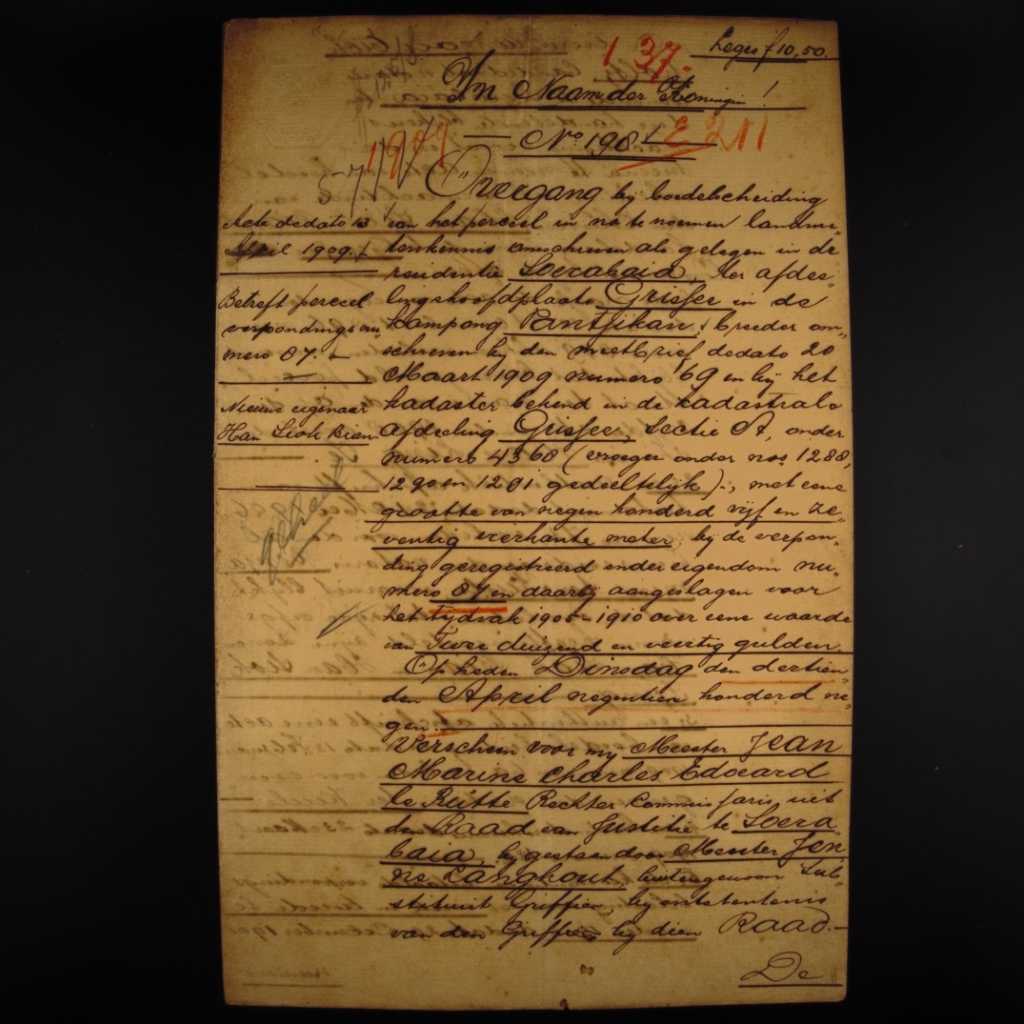 Leges f 10,50.
1 37.
In Naam der Koningin!
No 198
E 211
1909
Overgang bij boedelscheiding
van het perceel in na te noemen landme-
terskennis omschreven als gelegen in de
residentie Soerabaia, ter afdee-
lingshoofdplaats Grissee in de
kampong Pantjikan, breeder om-
schreven bij den meetbrief dedato 20
Maart 1909 numero 69 en bij het
kadaster bekend in de kadastrale
afdeeling Grissee, Sectie A, onder
numero 4368 (vroeger onder nos 1288,
1290 en 1291 gedeeltelijk)., met eene
grootte van negen honderd vijf en ze-
ventig vierkante meter, bij de verpon-
ding geregistreerd onder eigendom nu-
mero 87 en daarbij aangeslagen voor
het tijdvak 1908-1910 over eene waarde
van Twee duizend en veertig gulden.
Op heden Dinsdag den dertien-
den April negentien honderd ne-
gen.
Verscheen voor mij Meester Jean
Marine Charles Edouard
le Rütte Rechter Commissaris uit
den Raad van Justitie te Soera
baia, bijgestaan door Meester Jan
Langhout, buitengewoon Sub-
stituut Griffier, bij ontstentenis
van den Griffier bij dien Raad.-
De
Acte dedato 13
April 1909.
Betreft perceel
verpondings nu
mero 87.
Nieuwe eigenaar
Han Siok Bien